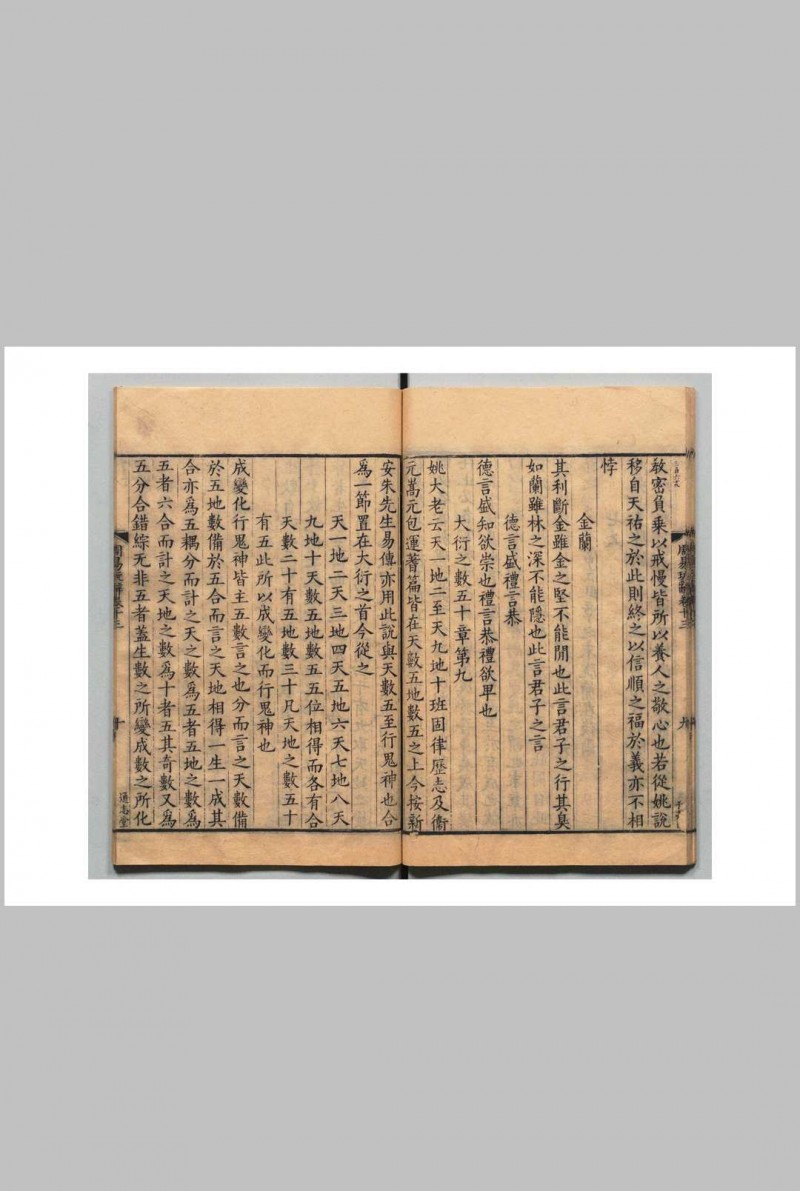 敬密負乗以戒慢皆所以養人之敬心也若從姚說
移自天祐之於此則終之以信順之福於義亦不相
悖
金蘭
其利斷金雖金之堅不能閒也此言君子之行其臭
如蘭雖林之深不能隱也此言君子之言
德言盛禮言恭
德言盛知欲崇也禮言恭禮欲卑也
大衍之數五十章第九
姚大老云天一地二至天九地十班固律歷志及衞
元嵩元包運蓍篇皆在天數五地數五之上今按新
安朱先生易傳亦用此說與天數五至行鬼神也合
爲一節置在大衍之首今從之
天一地二天三地四天五地六天七地八天
九地十天數五地數五五位相得而各有合
天數二十有五地數三十凡天地之數五十
有五此所以成變化而行鬼神也
成變化行鬼神皆主五數言之也分而言之天數備
於五地數備於五合而言之天地相得一生一成其
合亦爲五耦分而計之天之數爲五者五地之數爲
五者六合而計之天地之數爲十者五其奇數又爲
五分合錯綜无非五者蓋生數之所變成數之所化
十
通志堂